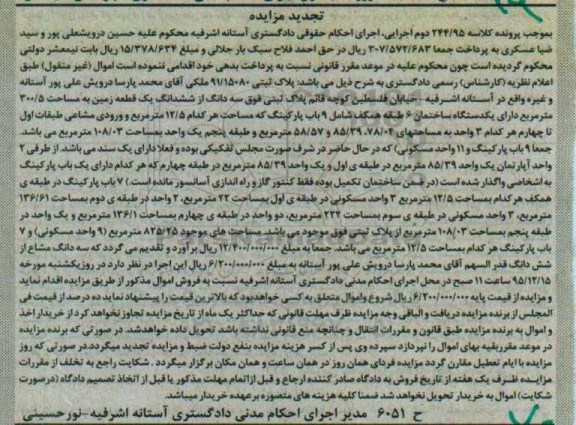 تجدید مزایده
بموجب پرونده کلاسه ۲۴۴/۹۵ دوم اجرایی، اجرای احکام حقوقی دادگستری آستانه اشرفیه محکوم علیه حسین درویشعلی پور و سید
ضیا عسکری به پرداخت جمعا ۳۰۷/۵۷۲/۶۸۳ ریال در حق احمد فلاح سبک بار جلالی و مبلغ ۱۵/۳۷۸/۶۳۴ ریال بابت نیمعشر دولتی
محکوم گردیده است چون محکوم علیه در موعد مقرر قانونی نسبت به پرداخت بدهی خود اقدامی ننموده است اموال (غیر منقول) طبق
اعلام نظریه (کارشناس) رسمی دادگستری به شرح ذیل می باشد: پلاک ثبتی ۹۱/۱۵۰۸۰ ملکی آقای محمد پارسا درویش علی پور آستانه
و غیره واقع در آستانه اشرفیه - خیابان فلسطین کوچه قائم پلاک ثبتی فوق سه دانگ از ششدانگ یک قطعه زمین به مساحت ۳۰۰/۵
مترمربع دارای یکدستگاه ساختمان ۶ طبقه همکف شامل ۹ باب پارکینگ که مساحت هر کدام ۱۲/۵ مترمربع و ورودی مشاعی طبقات اول
تا چهارم هر کدام ۳ واحد به مساحتهای ۷۸/۰۲، ۸۵/۳۹ و ۵۸/۵۷ مترمربع و طبقه پنجم یک واحد بمساحت ۱۰۸/۰۳ مترمربع می باشد.
جمعا ۹ باب پارکینگ و ۱۱ واحد مسکونی) که در حال حاضر در شرف صورت مجلس تفکیکی بوده و فعلا دارای یک سند می باشد. از طرفی ۲
واحد آپارتمان یک واحد ۸۵/۳۹ مترمربع در طبقه ی اول و یک واحد ۸۵/۳۹ مترمربع در طبقه چهارم که هر کدام دارای یک باب پارکینگ
به اشخاصی واگذار شده است (در ضمن ساختمان تکمیل بوده فقط کنتور گاز و راه اندازی آسانسور مانده است.) ۷ باب پارکینگ در طبقه ی
همکف هر کدام به مساحت ۱۲/۵ مترمربع ۳ واحد مسکونی در طبقه ی اول بمساحت ۲۲ مترمربع، ۲ واحد در طبقه ی دوم بمساحت ۱۳۶/۶۱
مترمربع، ۳ واحد مسکونی در طبقه ی سوم بمساحت ۲۲۲ مترمربع، دو واحد در طبقه ی چهارم بمساحت ۱۳۶/۱ مترمربع و یک واحد در
طبقه پنجم بمساحت ۱۰۸/۰۳ مترمربع از پلاک ثبتی فوق موجود می باشد. مساحت های موجود ۸۲۵/۲۵ مترمربع (۹ واحد مسکونی) و ۷
باب پارکینگ هر کدام بمساحت ۱۲/۵ مترمربع می باشد. جمعا به مبلغ ۱۲/۴۰۰/۰۰۰/۰۰۰ ریال برآورد و تقدیم می گردد که سه دانگ مشاع از
شش دانگ قدر السهم آقای محمد پارسا درویش علی پور آستانه به مبلغ ۶/۲۰۰/۰۰۰/۰۰۰ ریال این اجرا در نظر دارد در روز یکشنبه مورخه
۹۵/۱۲/۱۵ ساعت ۱۱ صبح در محل اجرای احکام مدنی دادگستری آستانه اشرفیه نسبت به فروش اموال مذکور از طریق مزایده اقدام نماید
و مزایده از قیمت پایه ۶/۲۰۰/۰۰۰/۰۰۰ ریال شروع واموال متعلق به کسی خواهدبود که بالاترین قیمت را پیشنهاد نماید ده درصد از قیمت فی
المجلس از برنده مزایده دریافت و الباقی وجه مزایده ظرف مهلت قانونی که حداکثر یک ماه از تاریخ مزایده تجاوز نخواهد کرد از خریدار اخذ
و اموال به برنده مزایده طبق قانون و مقررات انتقال و چنانچه منع قانونی نداشته باشد تحویل داده خواهدشد. در صورتی که برنده مزایده
در موعد مقرربقیه بهای اموال را نپردازد سپرده وی پس از کسر هزینه مزایده بنفع دولت ضبط و مزایده تجدید میگردد.در صورتی که روز
مزایده با ایام تعطیل مقارن گردد مزایده فردای همان روز در همان ساعت و همان مکان برگزار میگردد. شکایت راجع به تخلف از مقررات
مزایده ظرف یک هفته از تاریخ فروش به دادگاه صادر کننده ارجاع و قبل ازاتمام مهلت مذکور یا قبل از اتخاذ تصمیم دادگاه (درصورت
شکایت) اموال به خریدار تحویل نخواهد شد ضمنا کلیه هزینه های متصوره برعهده خریدار میباشد.
ح ۶۰۵۱ مدیر اجرای احکام مدنی دادگستری آستانه اشرفیه-نورحسینی